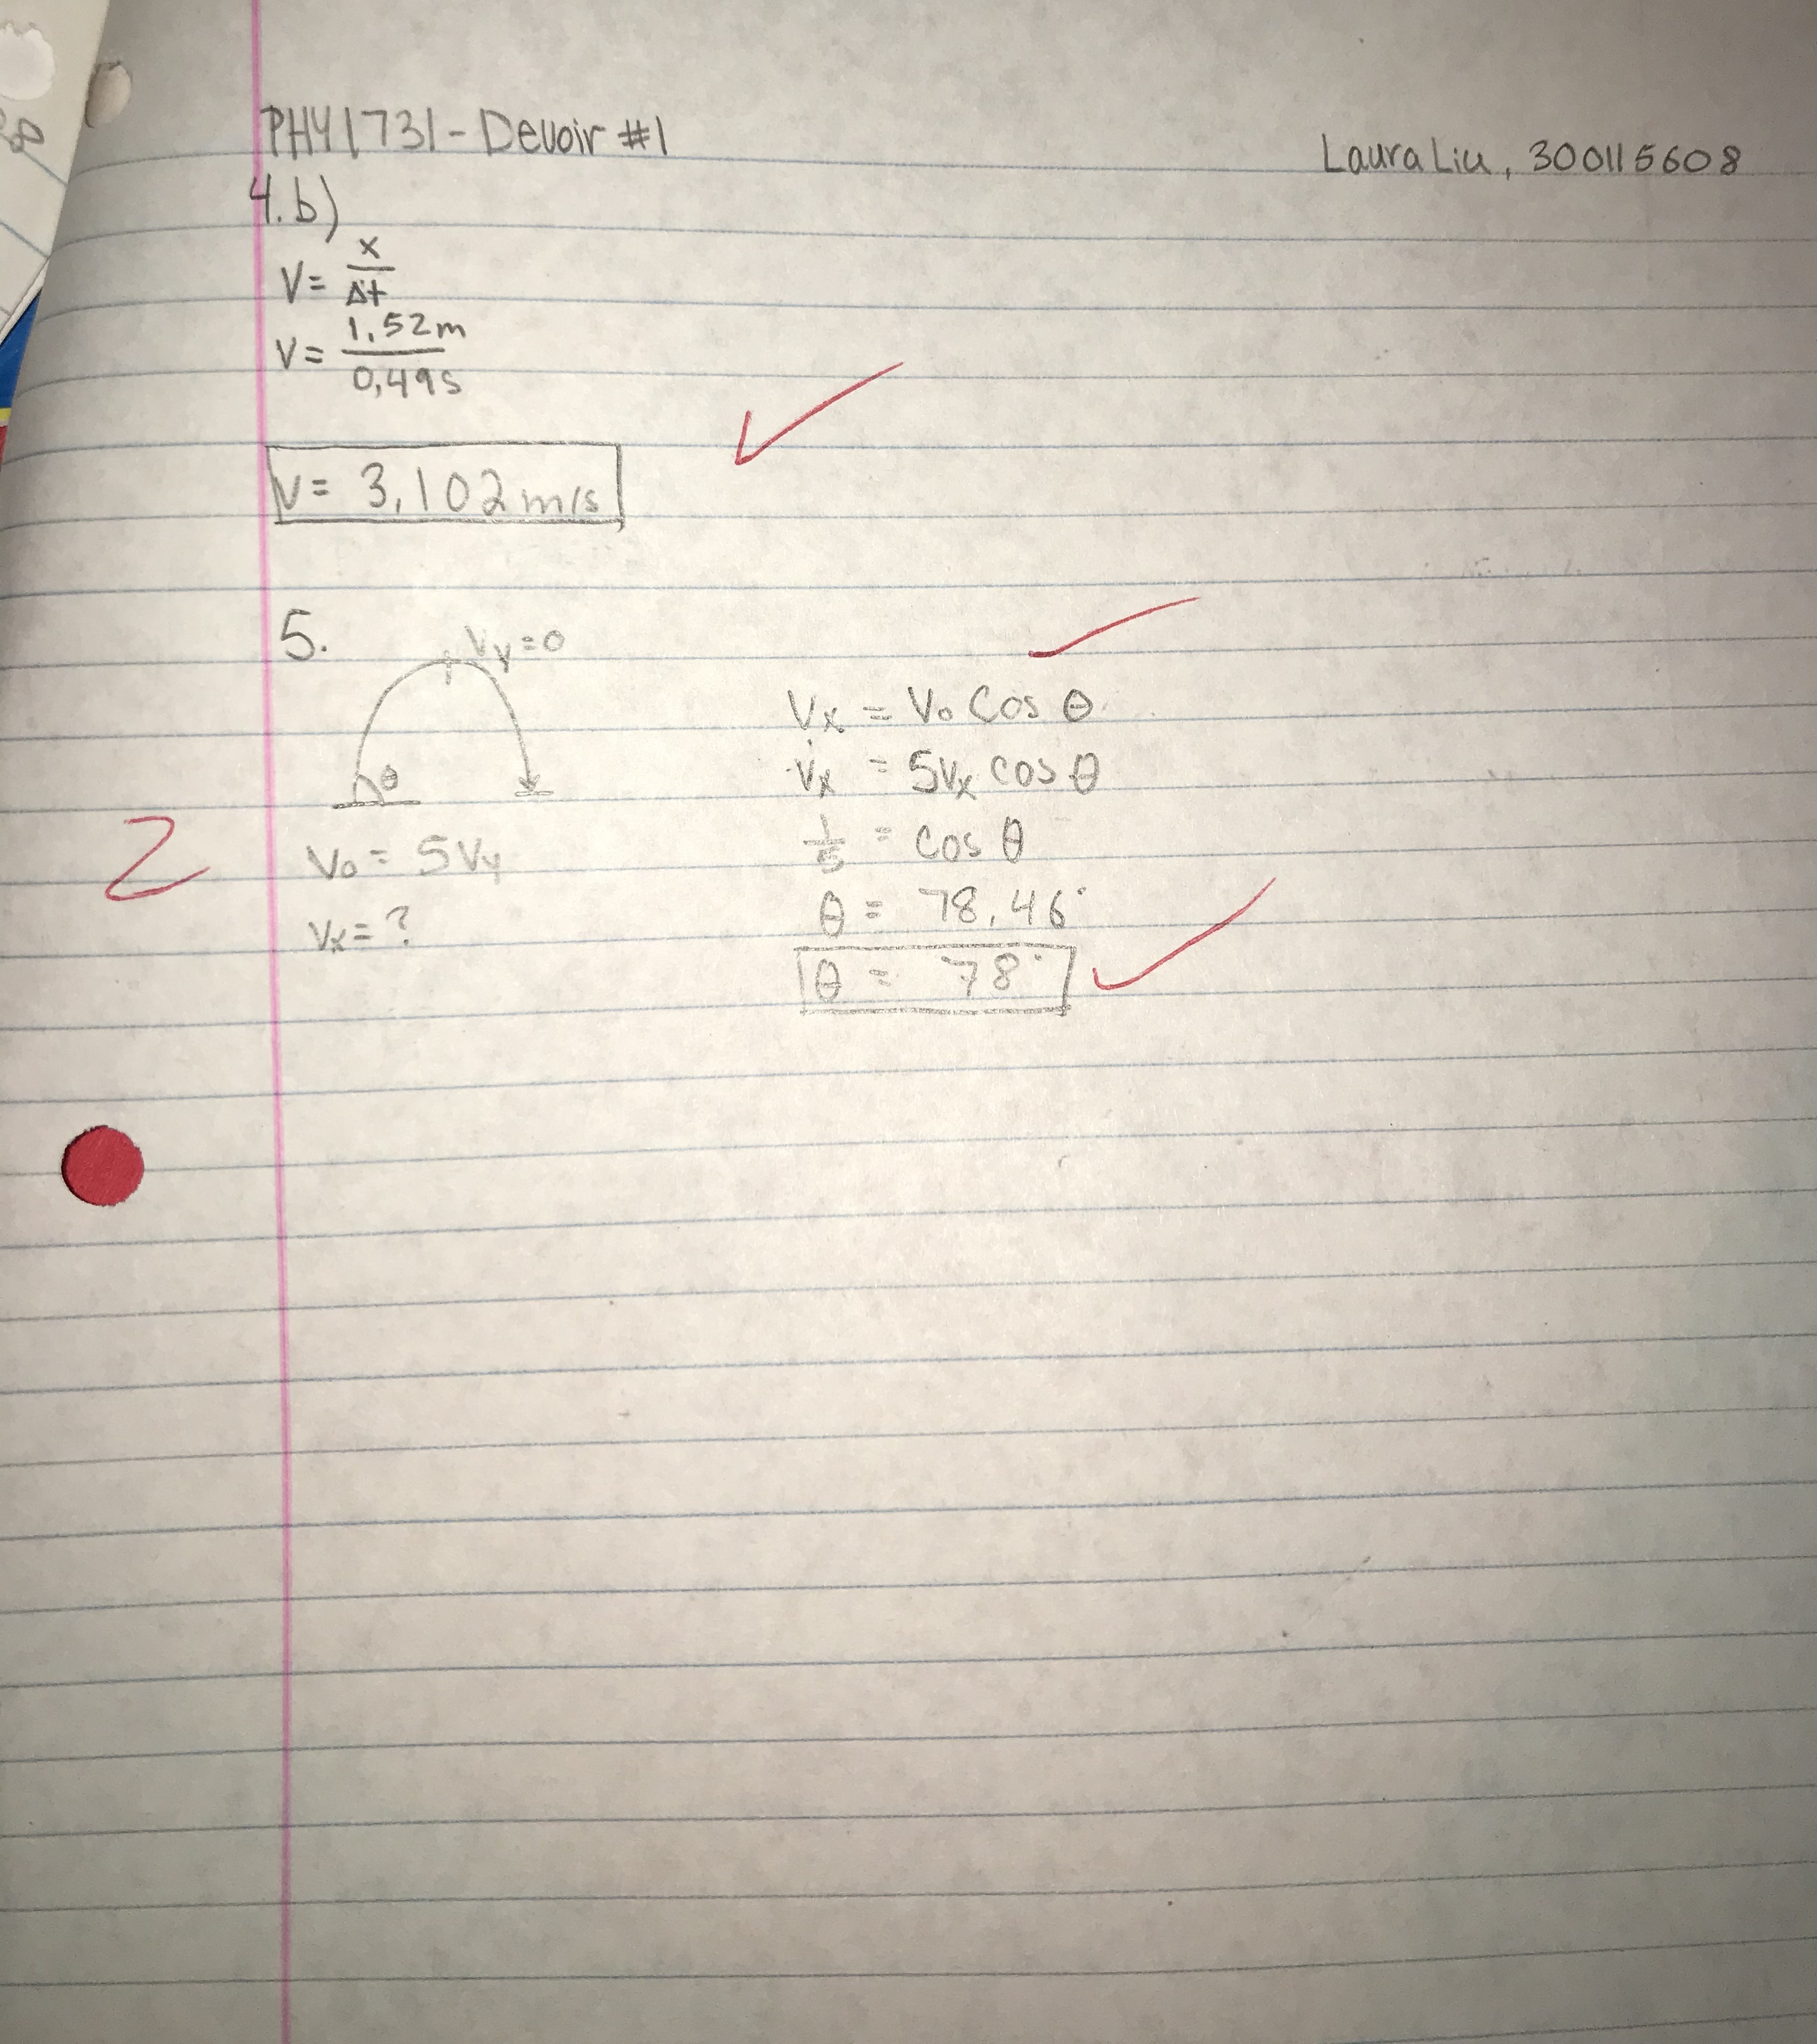 PHY1731 - Devoir #1
Laura Liu, 300115608
4.b)
V = x/Δt
V = 1,52m/0,49s
V = 3,102 m/s
5.
Vy = 0
θ
V₀ = 5Vy
Vx = ?
Vx = V₀ cos θ
Vx = 5Vx cos θ
1/5 = cos θ
θ = 78,46°
θ = 78°
2